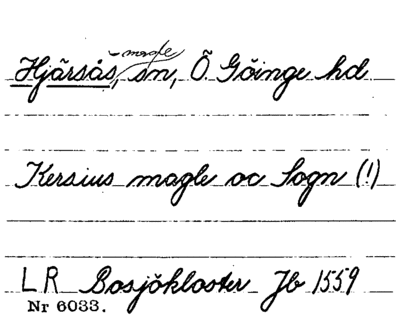 Hjärsås, magle sn, Ö Göinge hd
Kersius magle oc Sogn (!)
LR Bosjökloster Jb 1559
Nr 6033.